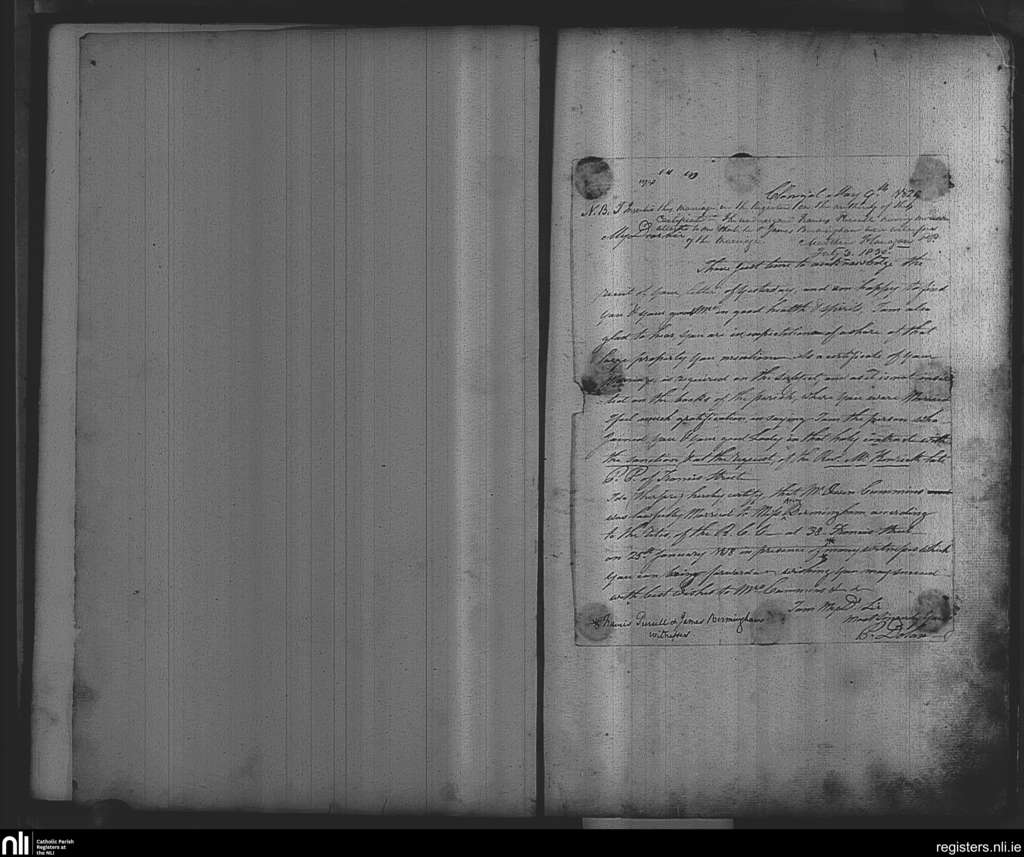 Clonmel May 9th 1826
N.B. I inserted this marriage in the Register on the authority of this
Certificate
of the marriage. Matthew Flanagan P.P.
July 3. 1832
I have just time to acknowledge the
receipt of your letter of yesterday, and am happy to find
you & your good Mrs in good health & spirits, I am also
glad to hear you are in expectation of a share of that
large property you mention. As a certificate of your
Marriage, is required on the subject and as it is not inser
ted on the books of the parish, where you were Married
I feel much gratification in saying I am the person who
joined you & your good Lady in that holy contract with
the sanction & at the request, of the Revd. Mr. Kenrick late
P.P. of Francis Street
I do therefore hereby certify that Mr Owen Cummins
was lawfully Married to Miss Birmingham according
to the Rites of the R. C. C. at 38 Francis Street
on 25th January 1818 in presence of * many witnesses which
you can bring forward wishing you may succeed
with best wishes to Mrs Cummins
I am My dr Sir
Most Sincerely yours
P. Dolan
* Francis & James Birmingham
witnesses
nli
Catholic Parish
Registers at
the NLI
registers.nli.ie